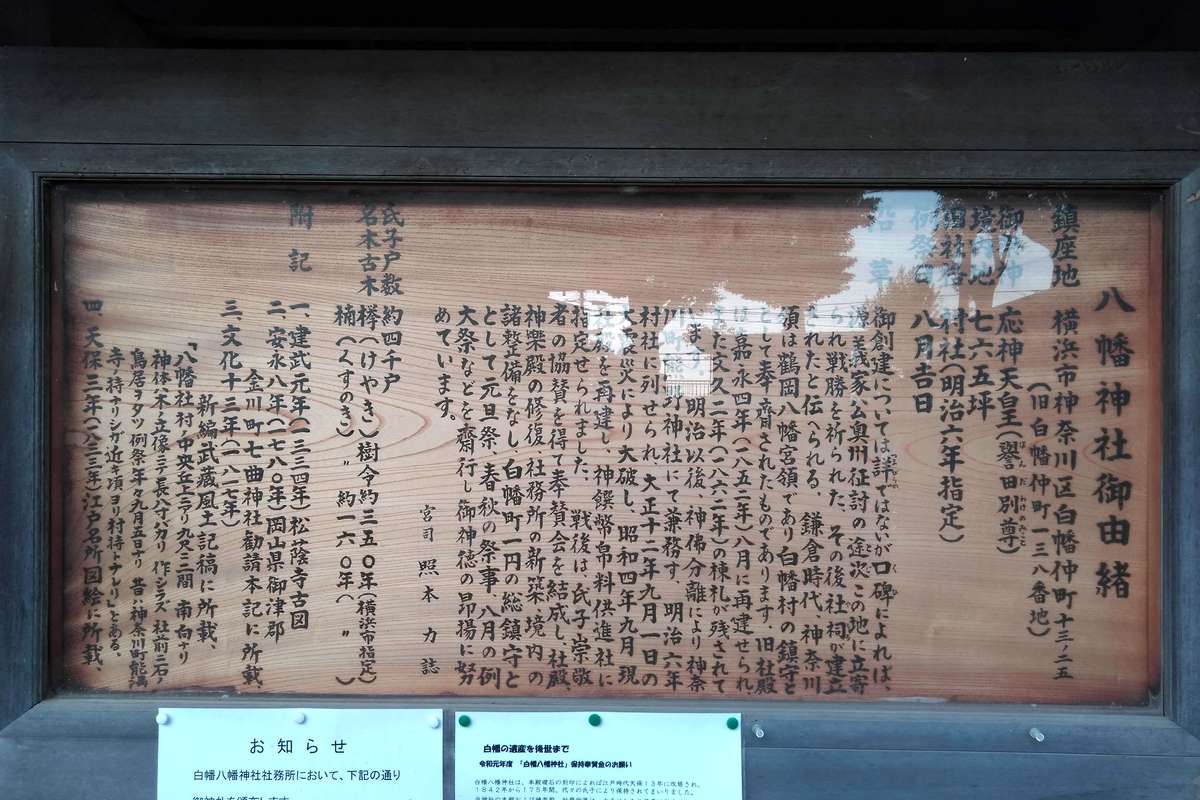 八幡神社御由緒
鎮座地 横浜市神奈川区白幡仲町十三ノ二五
(旧白幡仲町一三八番地)
御祭神 応神天皇(譽田別尊)
境内地 七六五坪
旧社格 村社(明治六年指定)
例祭日 八月吉日
沿革
御創建については詳ではないが口碑によれば、
源義家公奥州征討の途次この地に立寄
られ戦勝を祈られた。その後社祠が建立
されたと伝へられる、鎌倉時代、神奈川
領は鶴岡八幡宮領であり白幡村の鎮守と
して奉齋されたものであります。旧社殿
は嘉永四年(一八五二年)八月に再建せられ
また文久二年(一八六二年)の棟札が残されて
います。明治以後、神佛分離により神奈
川町能満町神社にて兼務す、明治六年
村社に列せられ、大正十二年九月一日の
大震災により大破し、昭和四年九月現
社殿を再建し、神饌幣帛料供進社に
指定せられました。 戦後は、氏子崇敬
者の協賛を得て奉賛会を結成し、社殿、
神樂殿の修復、社務所の新築、境内の
諸整備をなし、白幡町一円の総鎮守と
として元旦祭、春秋の祭事、八月の例
大祭などを齋行し御神徳の昂揚に努
めています。
宮司 照本 力 誌
氏子戸数 約四千戸
名木古木 欅(けやき)樹令約三五〇年(横浜市指定)
楠(くすのき) 〃 約一六〇年( 〃 )
附記
一、建武元年(一三三四年)松蔭寺古図
二、安永八年(一七八〇年)岡山県御津郡
金川町七曲神社勧請本記に所載、
三、文化十三年(一八一七年)
新編武蔵風土記稿に所載、
「八幡社 村ノ中央丘上ニアリ九尺ニ三間 南向ナリ
神体ハ木ノ立像ニテ長八寸バカリ 作シラズ 社前ニ石ノ
鳥居ヲタツ 例祭年々九月五日ナリ 昔ハ神奈川町能満
寺ノ持ナリシガ近キ頃ヨリ村持トナレリ」とある。
四、天保三年(一八三三年)江戸名所図絵に所載、
お知らせ
白幡八幡神社社務所において、下記の通り
御神札を頒布します
白幡の遺産を後世まで
令和元年度 「白幡八幡神社」保持奉賛金のお願い
白幡八幡神社は、本殿礎石の刻印によれば江戸時代天保13年に改修され、
1842年から175年間、代々の氏子により保持されてまいりました。